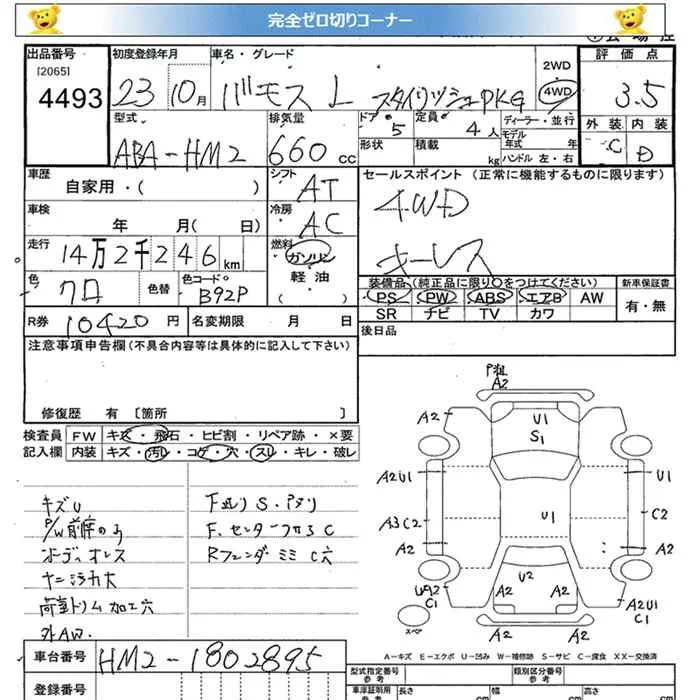 完全ゼロ切りコーナー
出品番号 初度登録年月 車名・グレード 2WD 評価点
[2065]
4493 23 10月 バモス L スタイリッシュPKG 4WD 3.5
型式 排気量 ドア 定員 ディーラー・並行 外装 内装
ABA-HM2 660cc 5 4人 モデル年式 年 C D
形状 積載 kg ハンドル 左・右
車歴 シフト セールスポイント(正常に機能するものに限ります)
自家用・( ) AT 4WD
車検 冷房
年 月( 日) AC キーレス
走行 燃料
14万2千246km ガソリン
色 色替 色コード 軽油 装備品(純正品に限り○をつけてください) 新車保証書
クロ B92P ( ) PS PW ABS エアB AW 有・無
R券 10420円 名変期限 月 日 SR ナビ TV カワ
注意事項申告欄(不具合内容等は具体的に記入して下さい) 後日品
修復歴 有 [箇所 ]
検査員 FW キズ・飛石・ヒビ割・リペア跡・×要
記入欄 内装 キズ・汚レ・コゲ・穴・スレ・キレ・破レ
キズU
下廻りS・サビ
F.センター C
Rフェンダーミミ C穴
荷室トリム加工穴
外AW.
A2
A2 U1 A2
S1
A2U1 U1
A3C2 U1 C2
A2 A2
U2
A2 A2 A2U1
C1 C1
スペア A2 A2
A-キズ E-エクボ U-凹み W-補修跡 S-サビ C-腐食 XX-交換済
車台番号 HM2-1802895
登録番号 型式指定番号 参考 類別区分番号 参考
車庫証明用 参考 長さ cm 幅 cm 高さ cm